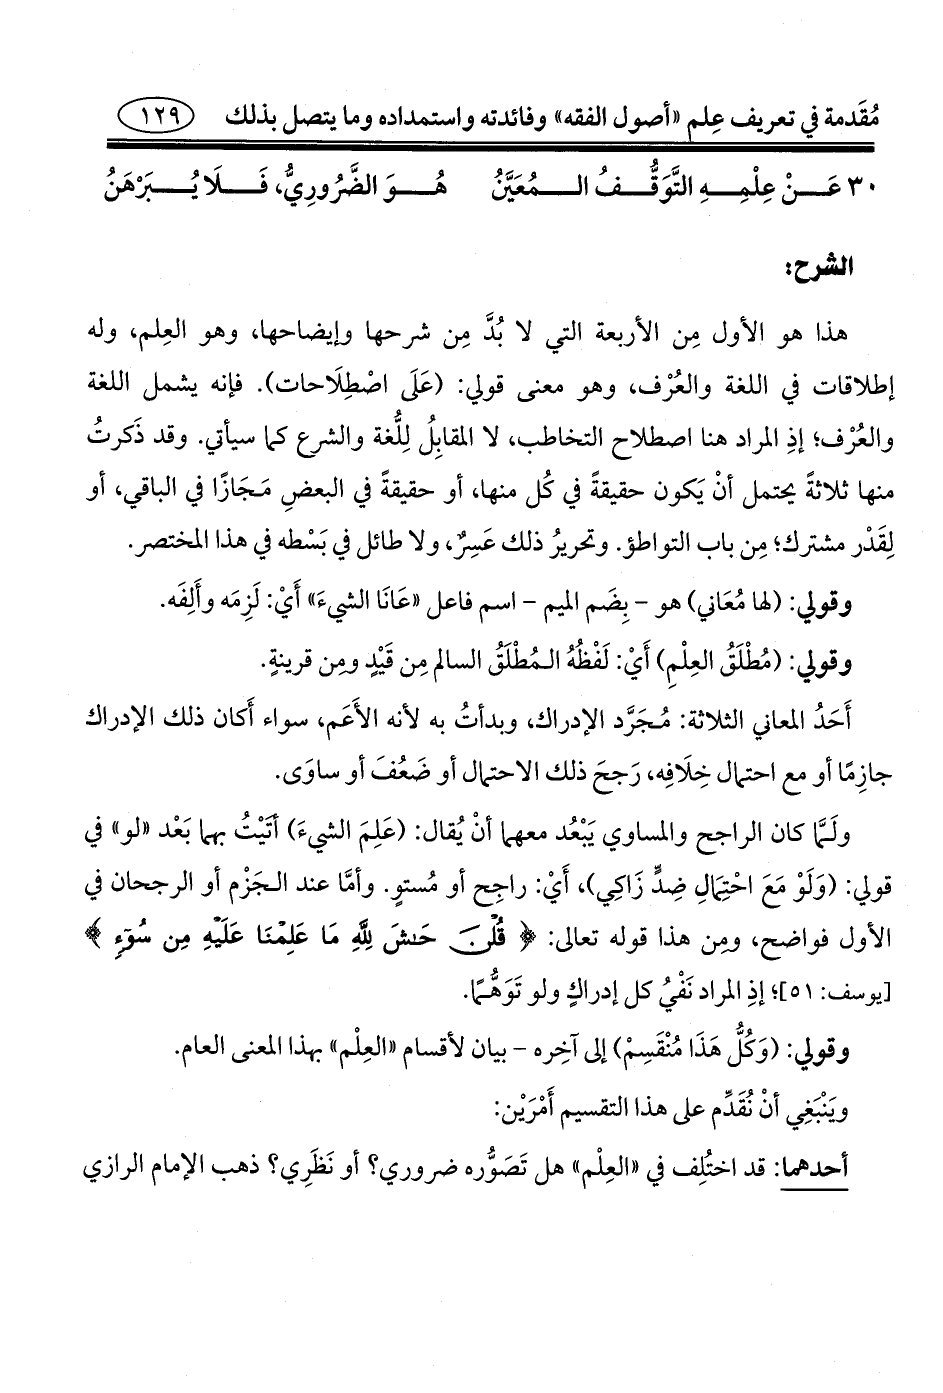 مُقَدمة في تعريف عِلم «أصول الفقه» وفائدته واستمداده وما يتصل بذلك ١٢٩
٣٠ عَـنْ عِلْمِـهِ التَّوَقُّـفُ الـمُعَيَّنُ هُـوَ الضَّرُورِيُّ، فَـلَا يُـبَرْهَنُ
الشرح:
هذا هو الأول مِن الأربعة التي لا بُدَّ مِن شرحها وإيضاحها، وهو العِلم، وله
إطلاقات في اللغة والعُرْف، وهو معنى قولي: (عَلَى اصْطِلَاحات). فإنه يشمل اللغة
والعُرْف؛ إذِ المراد هنا اصطلاح التخاطب، لا المقابِلُ لِلُّغة والشرع كما سيأتي. وقد ذَكرتُ
منها ثلاثةً يحتمل أنْ يَكون حقيقةً في كُل منها، أو حقيقةً في البعضِ مَجَازًا في الباقي، أو
لِقَدْر مشترك؛ مِن باب التواطؤ. وتحريرُ ذلك عَسِرٌ، ولا طائل في بَسْطه في هذا المختصر.
وقولي: (لها مُعَاني) هو - بِضَم الميم - اسم فاعل «عَانَا الشيءَ» أَيْ: لَزِمَه وأَلِفَه.
وقولي: (مُطْلَقُ العِلْمِ) أَيْ: لَفْظُهُ الـمُطْلَقُ السالم مِن قَيْدٍ ومِن قرينةٍ.
أَحَدُ المعاني الثلاثة: مُجَرَّد الإدراك، وبدأتُ به لأنه الأَعَم، سواء أكان ذلك الإدراك
جازِمًا أو مع احتمال خِلَافِه، رَجحَ ذلك الاحتمال أو ضَعُفَ أو ساوَى.
ولَـمَّا كان الراجح والمساوي يَبْعُد معهما أنْ يُقال: (عَلِمَ الشيءَ) أتَيْتُ بهما بَعْد «لو» في
قولي: (وَلَوْ مَعَ احْتِمَالِ ضِدٍّ زَاكِي)، أَيْ: راجِح أو مُستوٍ. وأمَّا عند الـجَزْم أو الرجحان في
الأول فواضح، ومِن هذا قوله تعالى: ﴿ قُلْنَ حَـٰشَ لِلَّهِ مَا عَلِمْنَا عَلَيْهِ مِن سُوٓءٍ ﴾
[يوسف: ٥١]؛ إذِ المراد نَفْيُ كل إدراكٍ ولو تَوَهُّمًا.
وقولي: (وَكُلُّ هَذَا مُنْقَسِمْ) إلى آخِره - بيان لأقسام «العِلْم» بهذا المعنى العام.
ويَنْبَغِي أنْ نُقَدِّم على هذا التقسيم أَمْرَيْن:
أحدهما: قد اختُلِف في «العِلْم» هل تَصَوُّره ضروري؟ أو نَظَرِي؟ ذهب الإمام الرازي